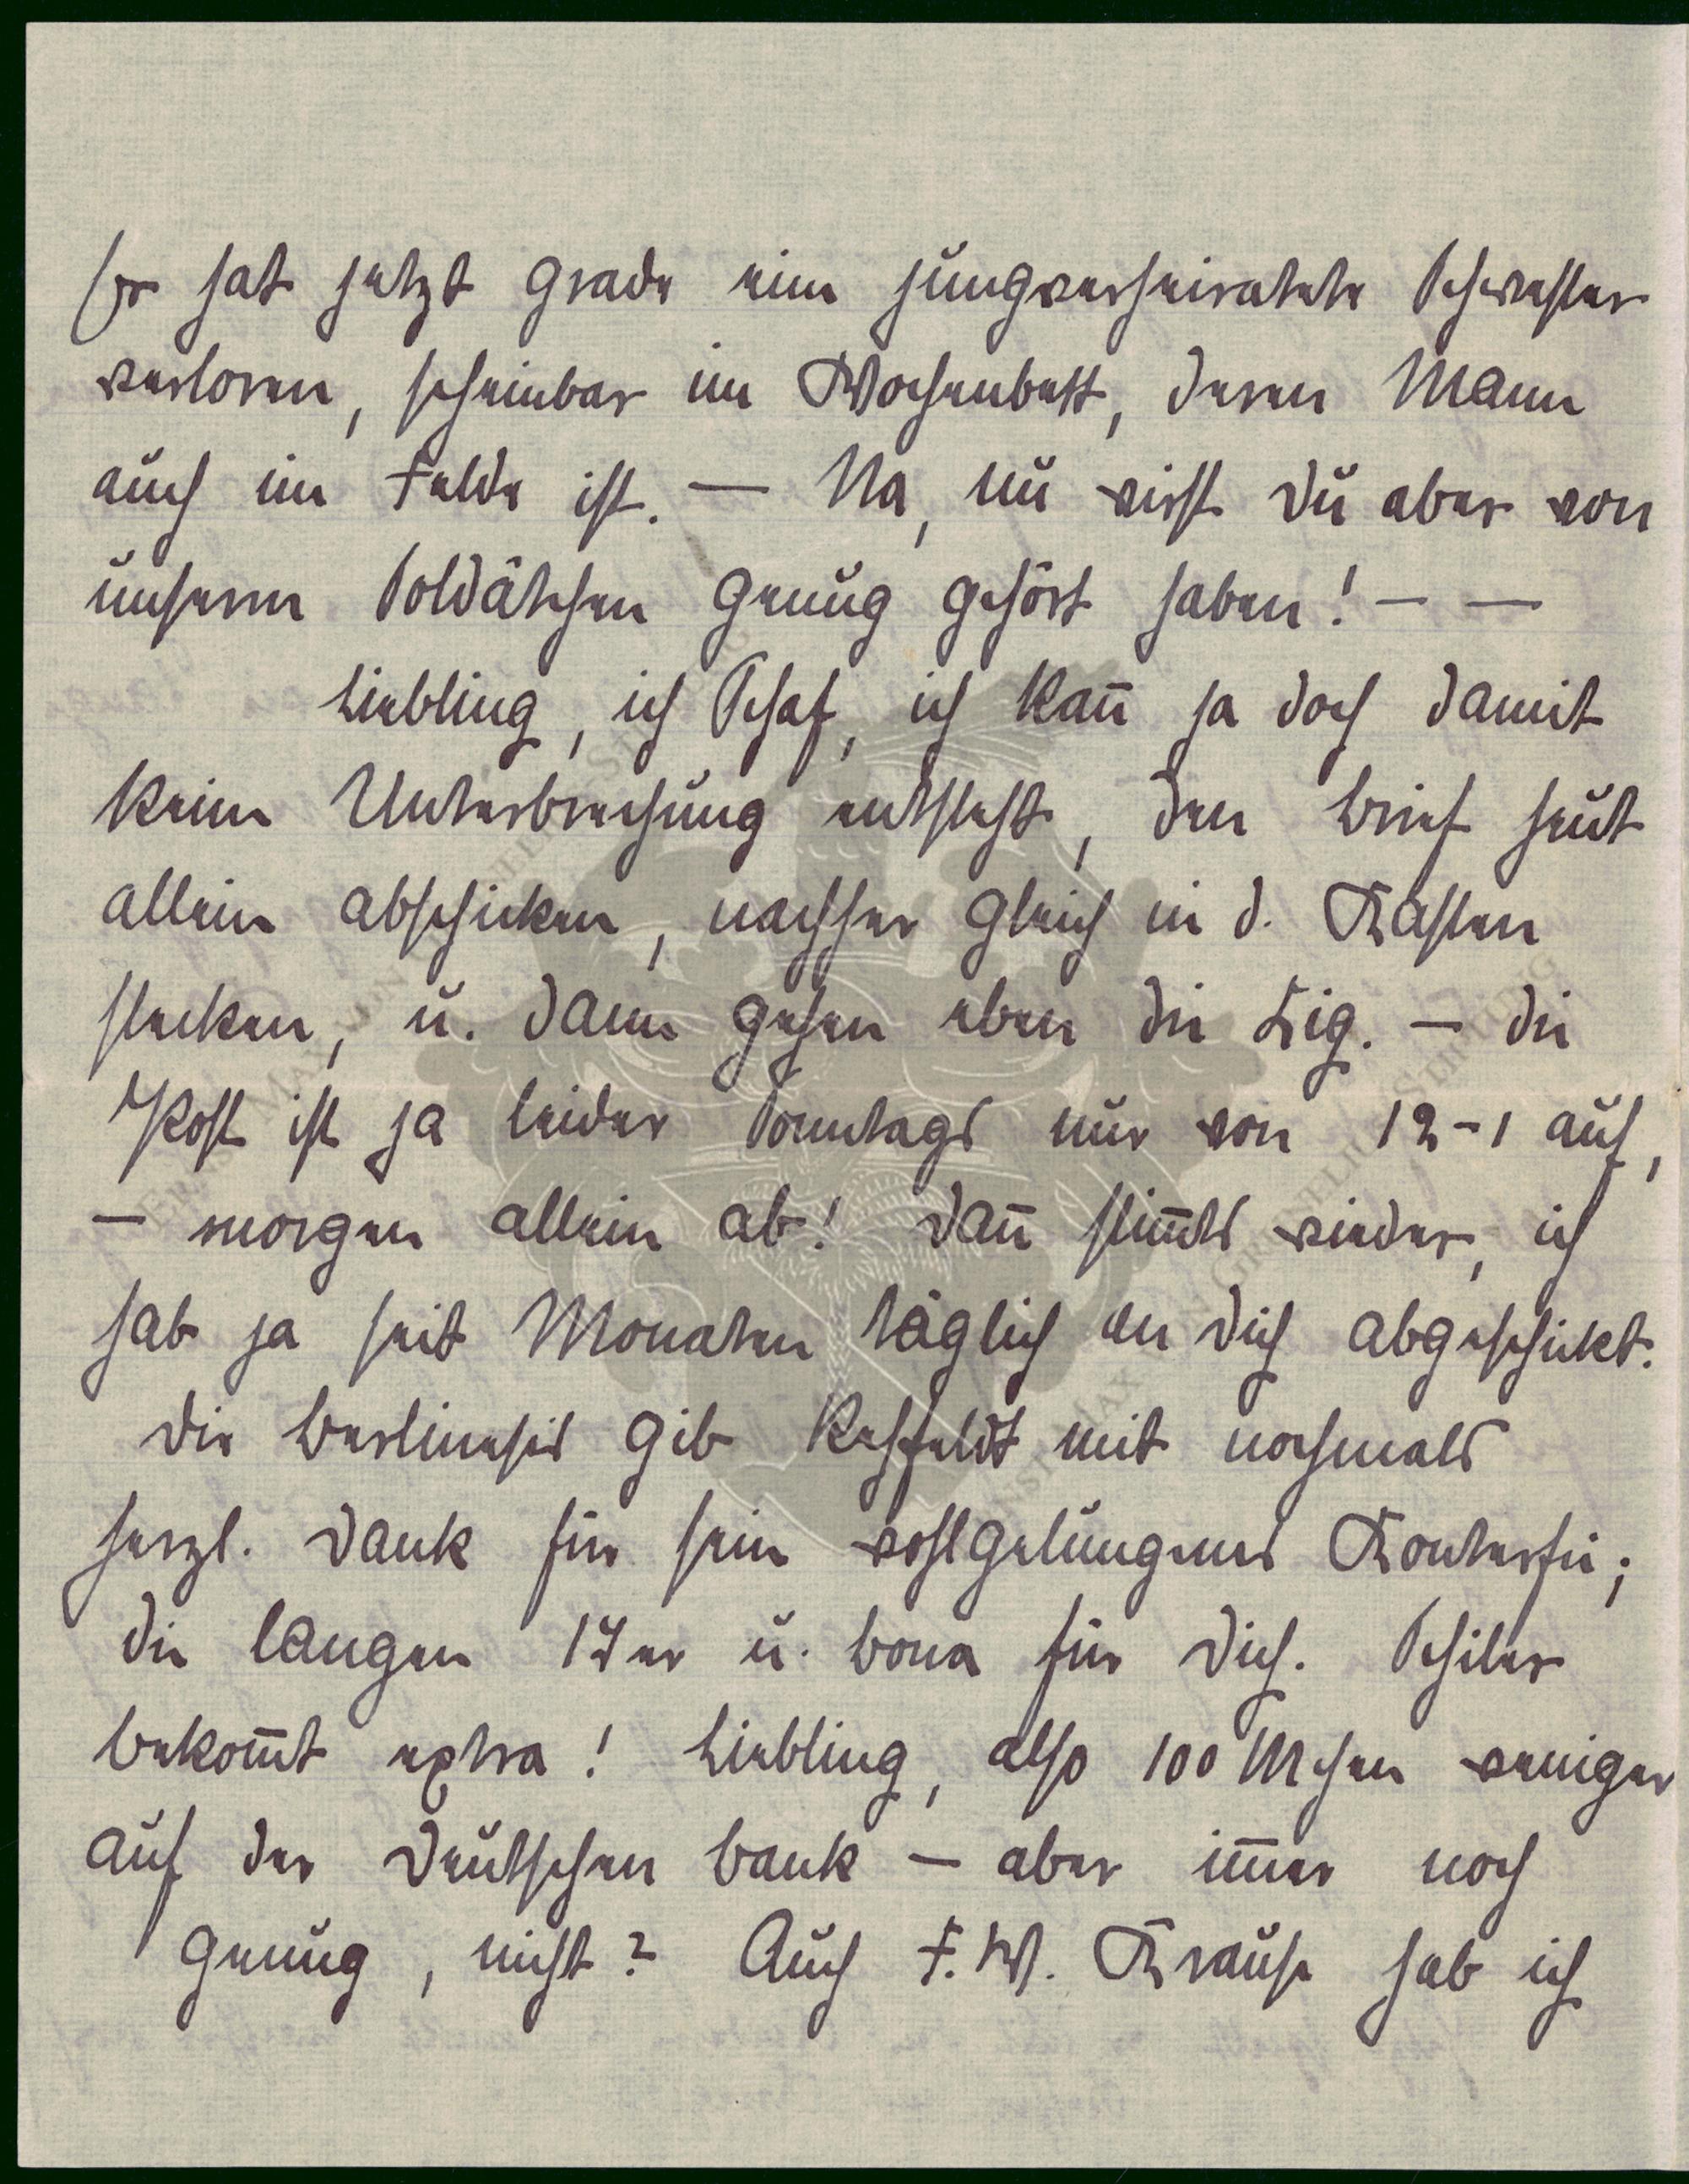 Er hat jetzt grade eine jungverheiratete Schwester
verloren, scheinbar im Wochenbett, deren Mann
auch im Felde ist. — Na, nu wirst Du aber von
unserm Soldätchen genug gehört haben! — —
Liebling, ich Schaf, ich kan̄ ja doch damit
keine Unterbrechung entsteht, den Brief heut
allein abschicken, nachher gleich in d. Kasten
stecken, u. dann gehen eben die Zig. — die
Post ist ja leider Sonntags nur von 12-1 auf,
— morgen allein ab! Dan̄ stim̄ts wieder, ich
hab ja seit Monaten täglich an Dich abgeschickt.
Die Berlinesis gib Rehfeldt mit nochmals
herzl. Dank für sein wohlgelungenes Konterfei;
die langen 17er u. Bona für Dich. Schiler
bekom̄t extra! Liebling, also 100 Mchen weniger
auf der Deutschen Bank — aber im̄er noch
genug, nicht? Auch F. W. Krause hab ich